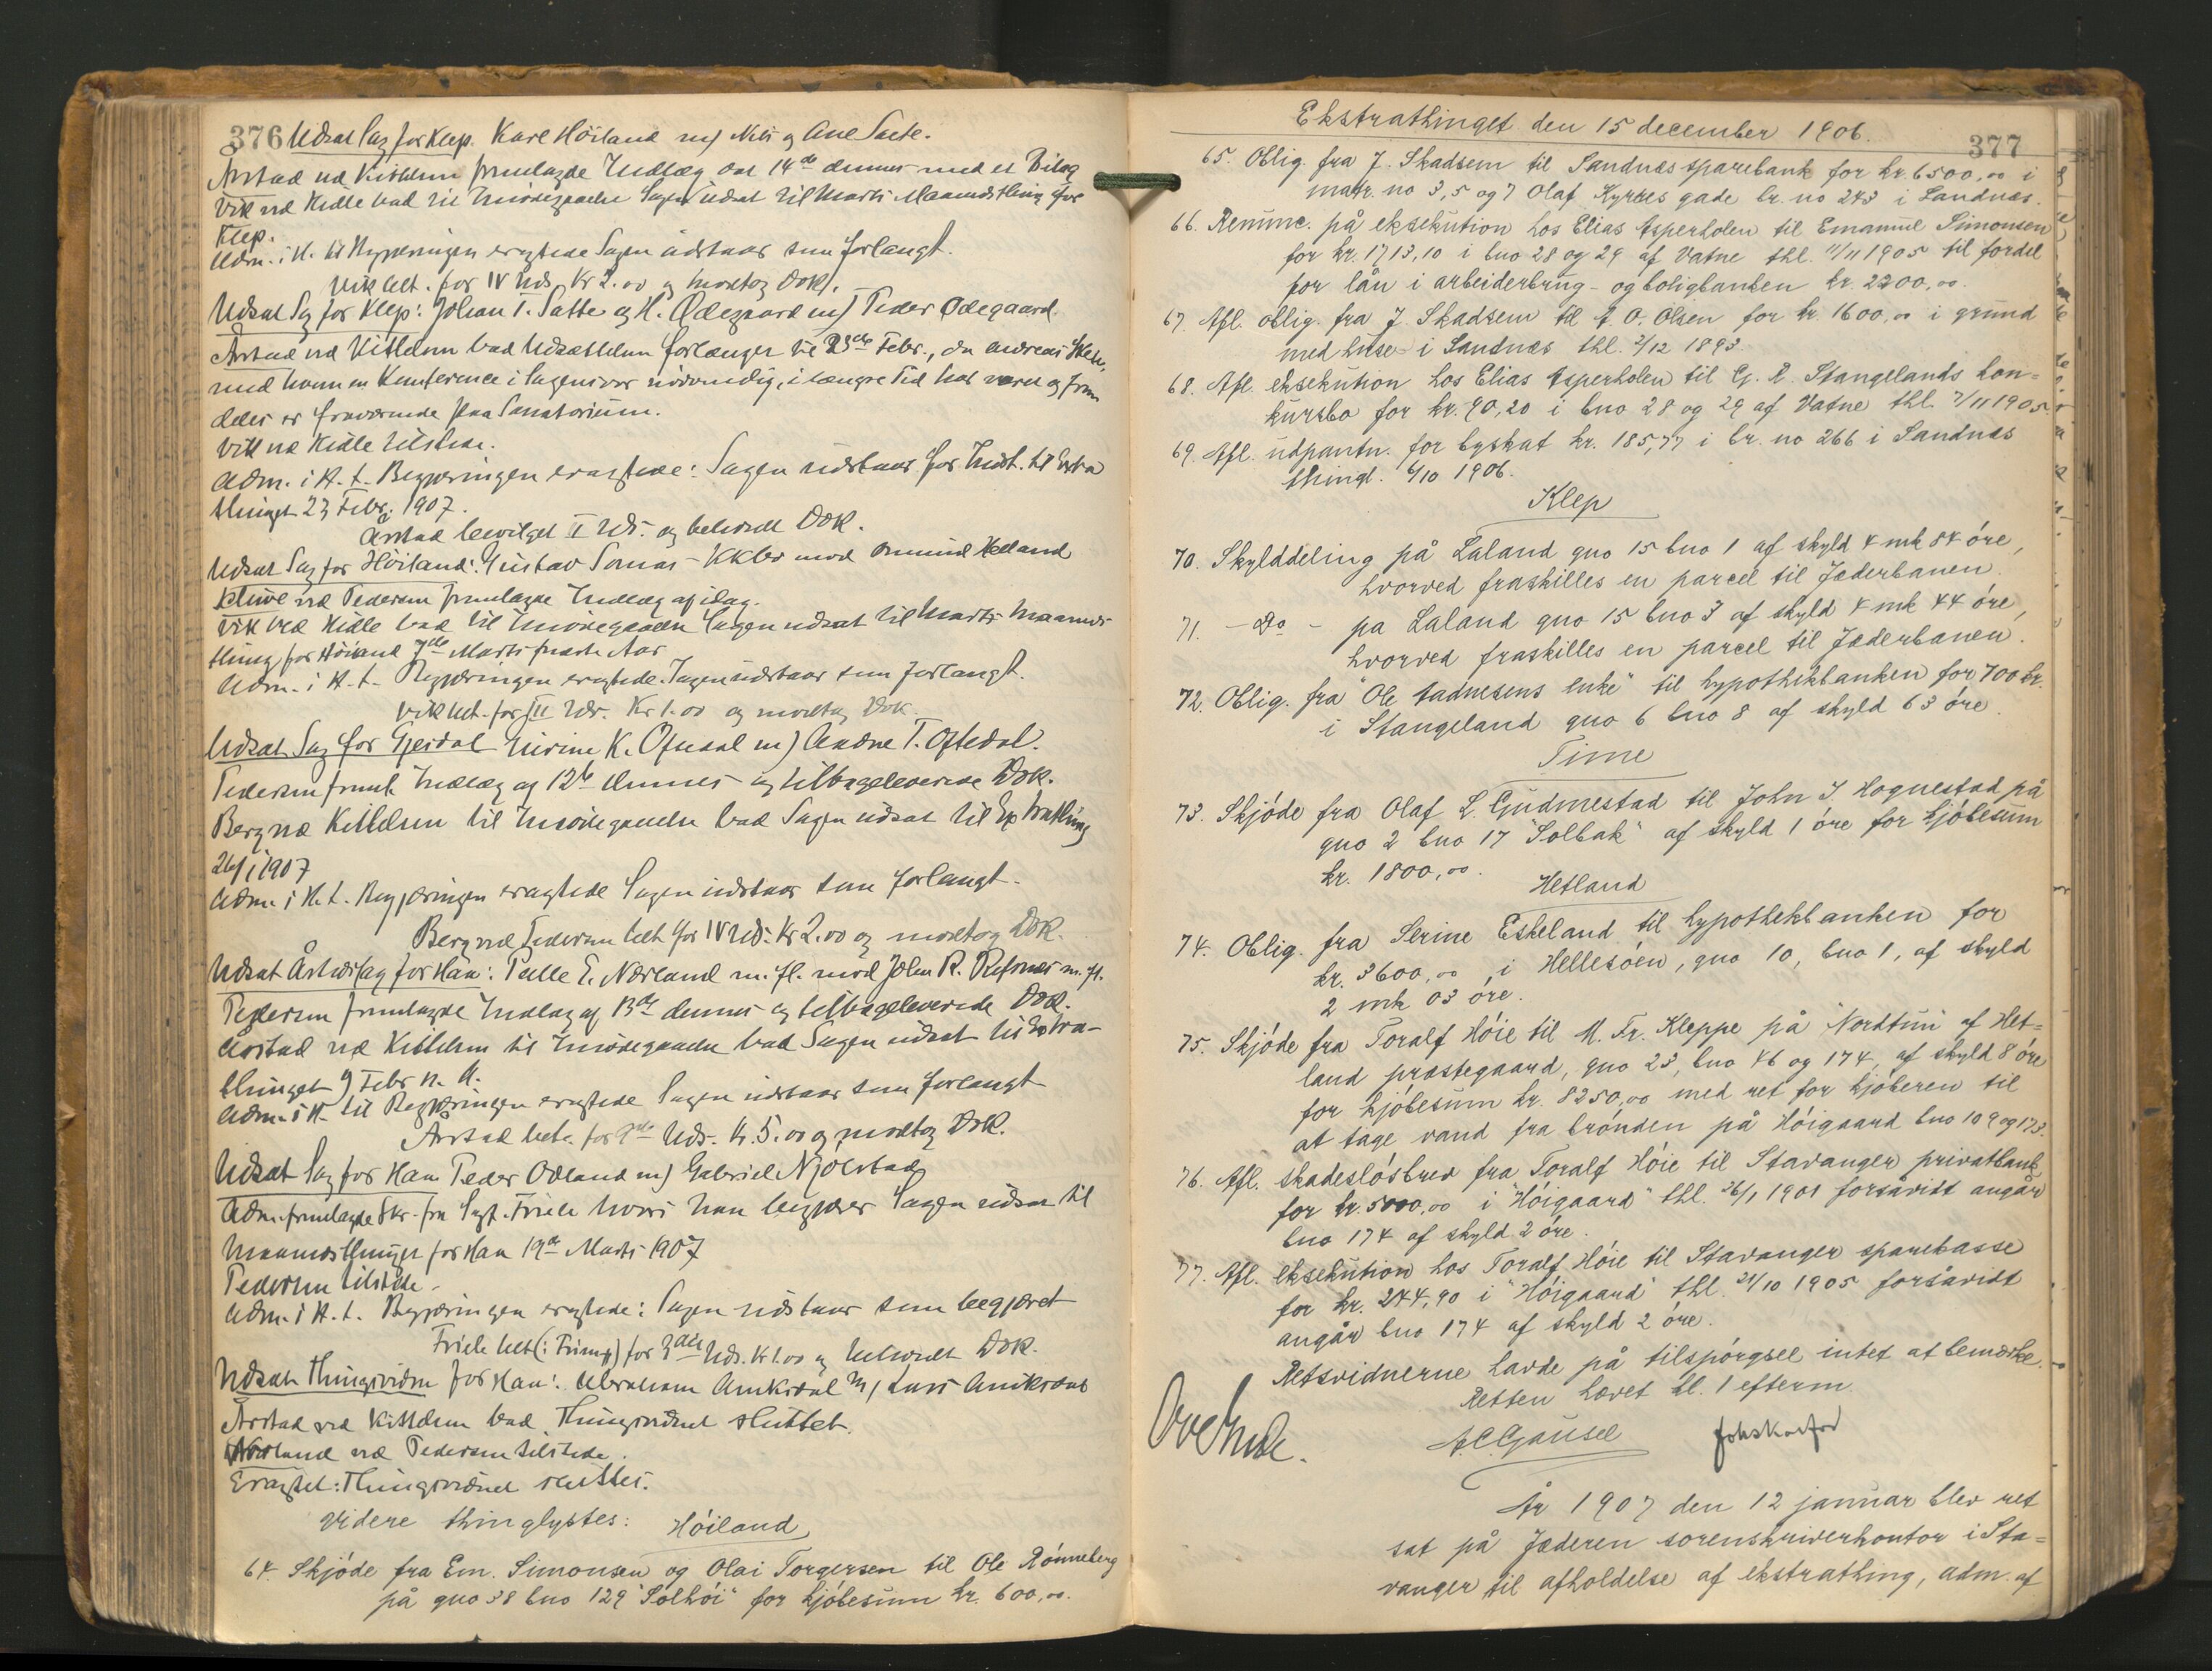 376 Udsat Sag for Klep. Karl Höiland m/ Nils og Ane Sæte.
Årstad ved Kittelsen fremlagde Indlæg dat 14de dennes med et Bilag
Vik ved Kidle bad til Imödegaaelse Sagen udsat til Marts Maanedsthing for
Klep.
Adm. i H. til Begjæringen eragtede Sagen udstaar som forlangt.
Vik bet. for IV Uds. Kr 2.00 og modtog Dok.
Udsat Sag for Klep: Johan T. Sætte og H. Ödegaard m/ Peder Ödegaard.
Årstad ved Kittelsen bad Udsættelsen forlænget til 23de Febr., da Andreas
med hvem en Konference i Sagen var nödvendig, i længre Tid har været og frem
deles er fraværende paa Sanatorium.
Vik ved Kidle tilstede.
Adm. i H. t. Begjæringen eragtede: Sagen udstaar for Indst. til Extra
thinget 23 Febr. 1907.
Årstad bevilget II Uds. og beholdt Dok.
Udsat Sag for Höiland: Gustav Somas - Kkbr mod Omund Helland
ved Pedersen fremlagde Indlæg af idag.
Vik ved Kidle bad til Imödegaaelse Sagen udsat til Marts Maaneds
thing for Höiland 7de Marts næste Aar
Adm. i H. t. Begjæringen eragtede Sagen udstaar som forlangt.
Vik bet. for III Uds. Kr 1.00 og modtog Dok.
Udsat Sag for Gjesdal K. m/ Andne T. Oftedal.
Pedersen freml. Indlæg af 12te dennes og tilbageleverede Dok.
Berg ved Kittelsen til Imödegaaelse bad Sagen udsat til Extrathing
26/1 1907
Adm. i H. t. Begjæringen eragtede Sagen udstaar som forlangt.
Berg ved Pedersen bet. for IV Uds. Kr 2.00 og modtog Dok.
Udsat Åstedssag for Haa: Palle T. Nærland m. fl. mod John R. Refsnæs m. fl.
Pedersen fremlagde Indlæg af 13de dennes og tilbageleverede Dok.
Årstad ved Kittelsen til Imödegaaelse bad Sagen udsat til Extra-
thinget 9 Febr n. A.
Adm. i H. til Begjæringen eragtede Sagen udstaar som forlangt
Årstad bet. for 9de Uds. Kr. 5.00 og modtog Dok.
Udsat Sag for Haa Peder Ödland m/ Gabriel Njölstad
Adm. fremlagde Skr. fra Sagf. Friele hvori han begjærer Sagen udsat til
Maanedsthinget for Haa 19de Marts 1907
Pedersen tilstede.
Adm. i H. t. Begjæringen eragtede: Sagen udstaar som begjæret
Friele bet (i Frimrk) for 3die Uds. Kr 1.00 og beholdt Dok.
Udsat Thingsvidne for Haa: Abraham Aniksdal m/ Lars Aniksdal
Årstad ved Kittelsen bad Thingsvidnet sluttet.
Nærland ved Pedersen tilstede.
Eragtet: Thingsvidnet sluttes.
Videre thinglystes: Höiland
64. Skjöde fra Em. Simonsen og Olai Torgersen til Ole Rönneberg
på gno 38 bno 129 "Solhöi" for kjöbesum kr. 600,00.
Ekstrathinget den 15 december 1906.
377
65. Oblig. fra J. Skadsem til Sandnæs sparebank for kr. 6500,00 i
matr. no 3, 5 og 7 Olaf Kyrres gade br. no 243 i Sandnæs.
66. Renunc. på eksekution hos Elias Asperholen til Emanuel Simonsen
for kr. 1713,10 i bno 28 og 29 af Vatne thl. 11/11 1905 til fordel
for lån i arbeiderbrug- og boligbanken kr. 2200,00.
67. Afl. oblig. fra J. Skadsem til A. O. Olsen for kr. 1600,00 i grund
med huse i Sandnæs thl. 2/12 1893.
68. Afl. eksekution hos Elias Asperholen til G. R. Stangelands kon=
kursbo for kr. 90,20 i bno 28 og 29 af Vatne thl. 7/11 1905.
69. Afl. udpantn. for byskat kr. 185,77 i br. no 266 i Sandnæs
thingl. 6/10 1906.
Klep
70. Skylddeling på Laland gno 15 bno 1 af skyld 4 mk 84 öre,
hvorved fraskilles en parcel til Jæderbanen.
71. - Do - pa Laland gno 15 bno 3 af skyld 4 mk 44 öre,
hvorved fraskilles en parcel til Jæderbanen.
72. Oblig. fra "Ole Aadnesens enke" til hypothekbanken for 700 kr.
i Stangeland gno 6 bno 8 af skyld 63 öre.
Time
73. Skjöde fra Olaf L. Gudmestad til John J. Hognestad på
gno 2 bno 17 "Solbak" af skyld 1 öre for kjöbesum
kr. 1800,00.
Hetland
74. Oblig. fra Serine Eskeland til hypothekbanken for
kr. 3600,00 i Hellesöen, gno 10, bno 1, af skyld
2 mk 03 öre.
75. Skjöde fra Toralf Höie til M. Fr. Kleppe på Nordtun af Het=
land præstegaard, gno 23, bno 46 og 174, af skyld 8 öre
for kjöbesum kr. 8250,00 med ret for kjöberen til
at tage vand fra brönden på Höigaard bno 109 og 173.
76. Afl. skadeslösbrev fra Toralf Höie til Stavanger privatbank
for kr. 5000,00 i "Höigaard" thl. 26/1 1901 forsåvidt angår
bno 174 af skyld 2 öre.
77. Afl. eksekution hos Toralf Höie til Stavanger sparekasse
for kr. 244,90 i "Höigaard" thl. 21/10 1905 forsåvidt
angår bno 174 af skyld 2 öre.
Retsvidnerne havde på tilspörgsel intet at bemærke.
Retten hævet kl. 1 efterm.
A.C. Gausel
År 1907 den 12 januar blev ret
sat på Jæderen sorenskriverkontor i Sta=
vanger til afholdelse af ekstrathing, adm. af